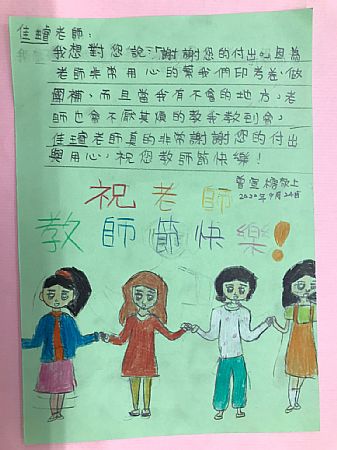 佳瑄老師:
我想對您說:謝謝您的付出。因為
老師非常用心的幫我們印考卷、做
團補,而且當我有不會的地方,老
師也會不厭其煩的教我教到會,
佳瑄老師真的非常謝謝您的付出
與用心,祝您教師節快樂!
曾宣 敬上
2020年9月24日
祝老師
教師節快樂!